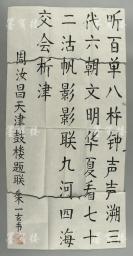 听百单八杵钟声声溯三
代六朝文明华夏看七十
二沽帆影影联九河四海
交会析津
周汝昌天津鼓楼题联 朱一玄书